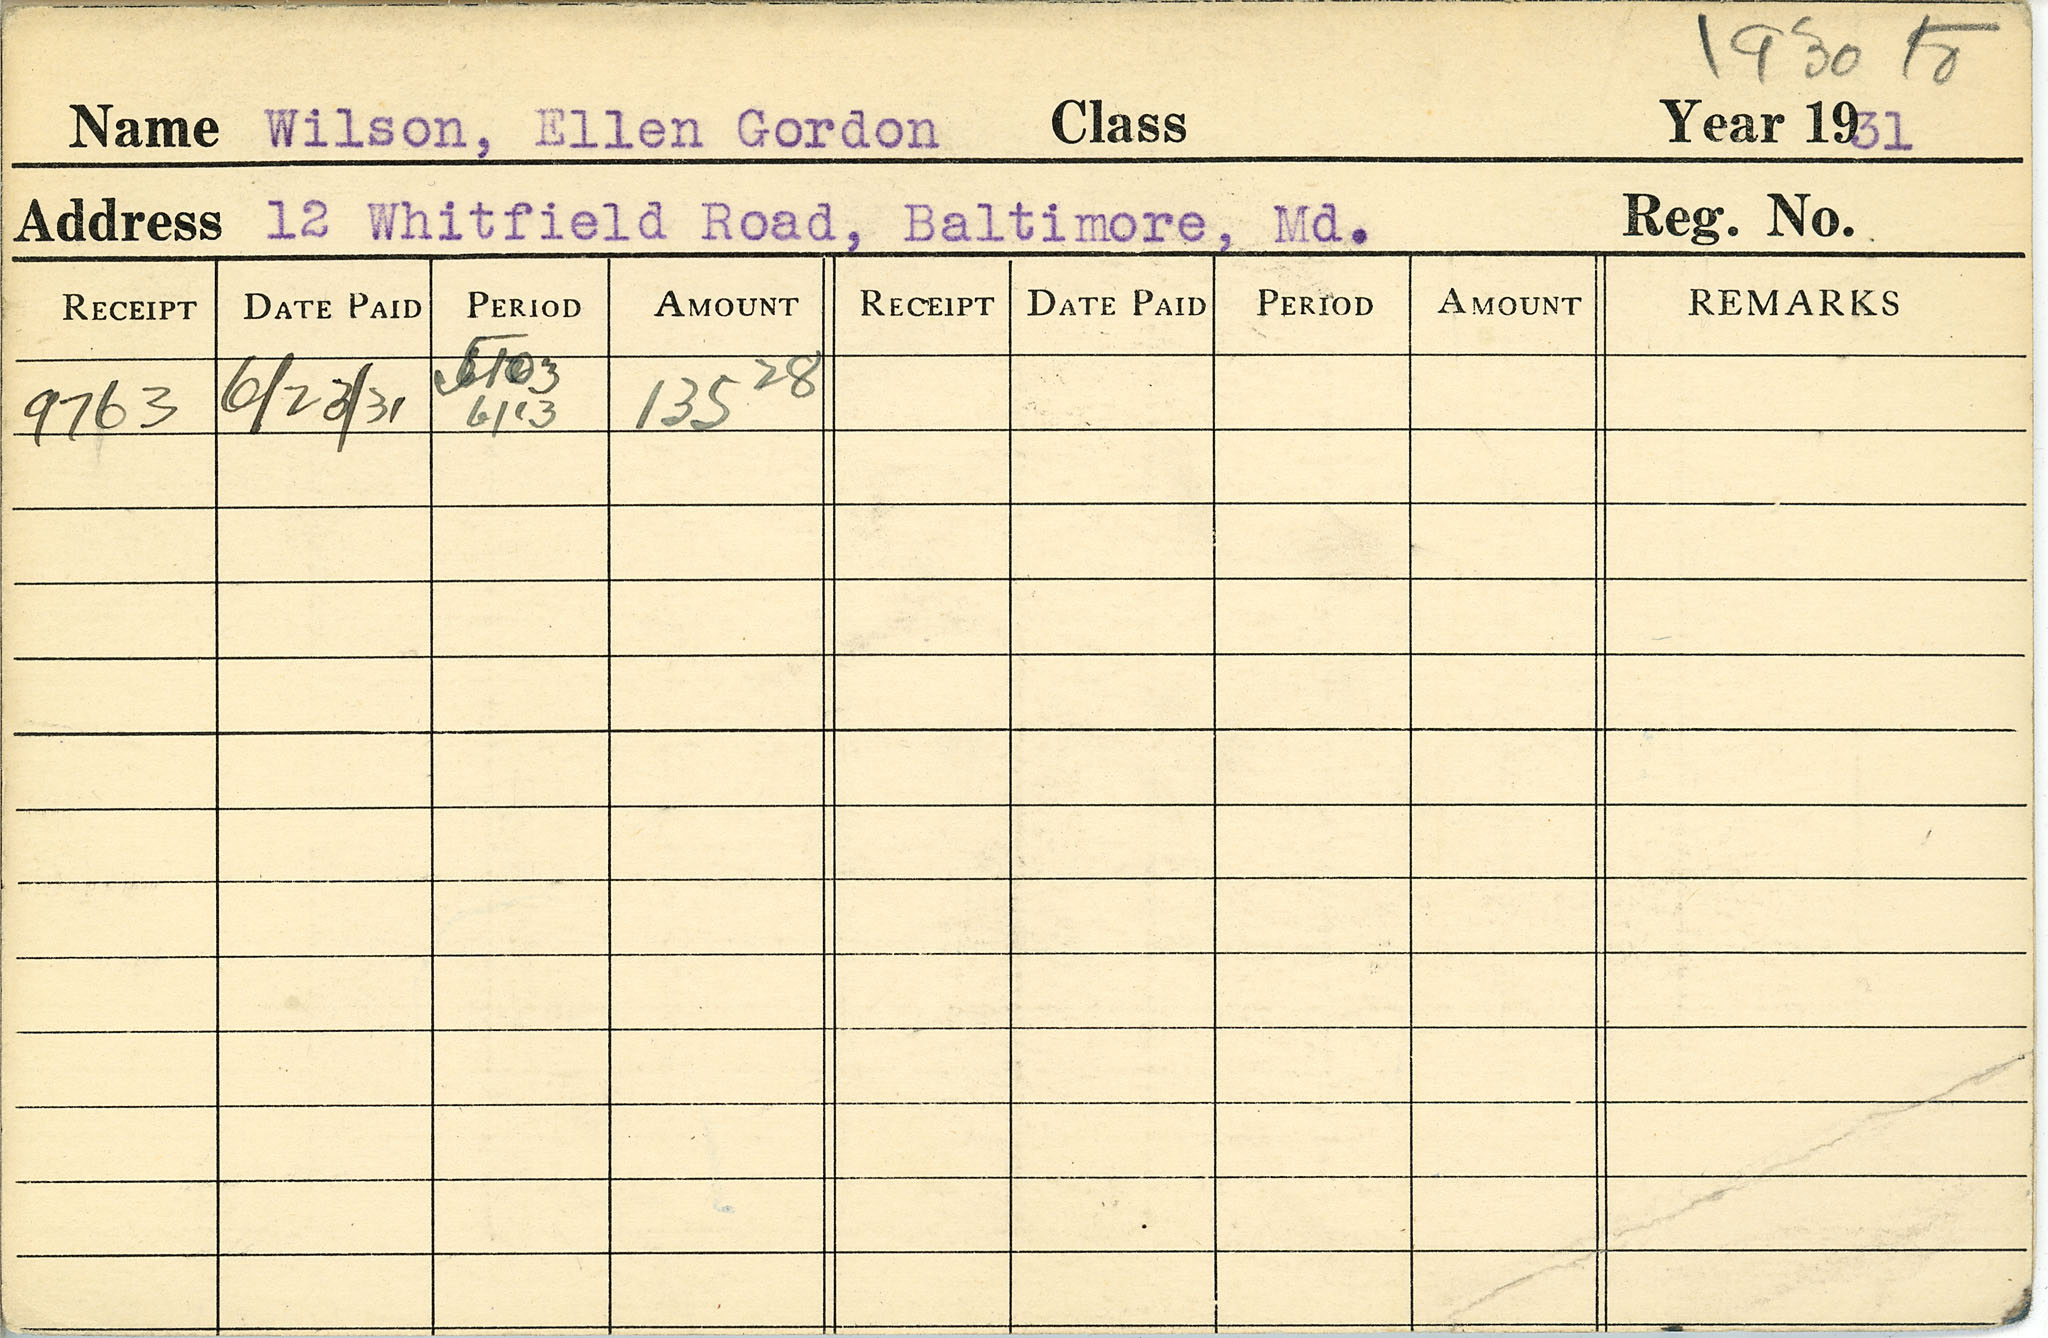 1930 to
Name Wilson, Ellen Gordon Class Year 1931
Address 12 Whitfield Road, Baltimore, Md. Reg. No.
RECEIPT DATE PAID PERIOD AMOUNT RECEIPT DATE PAID PERIOD AMOUNT REMARKS
9763 6/23/31 135 28